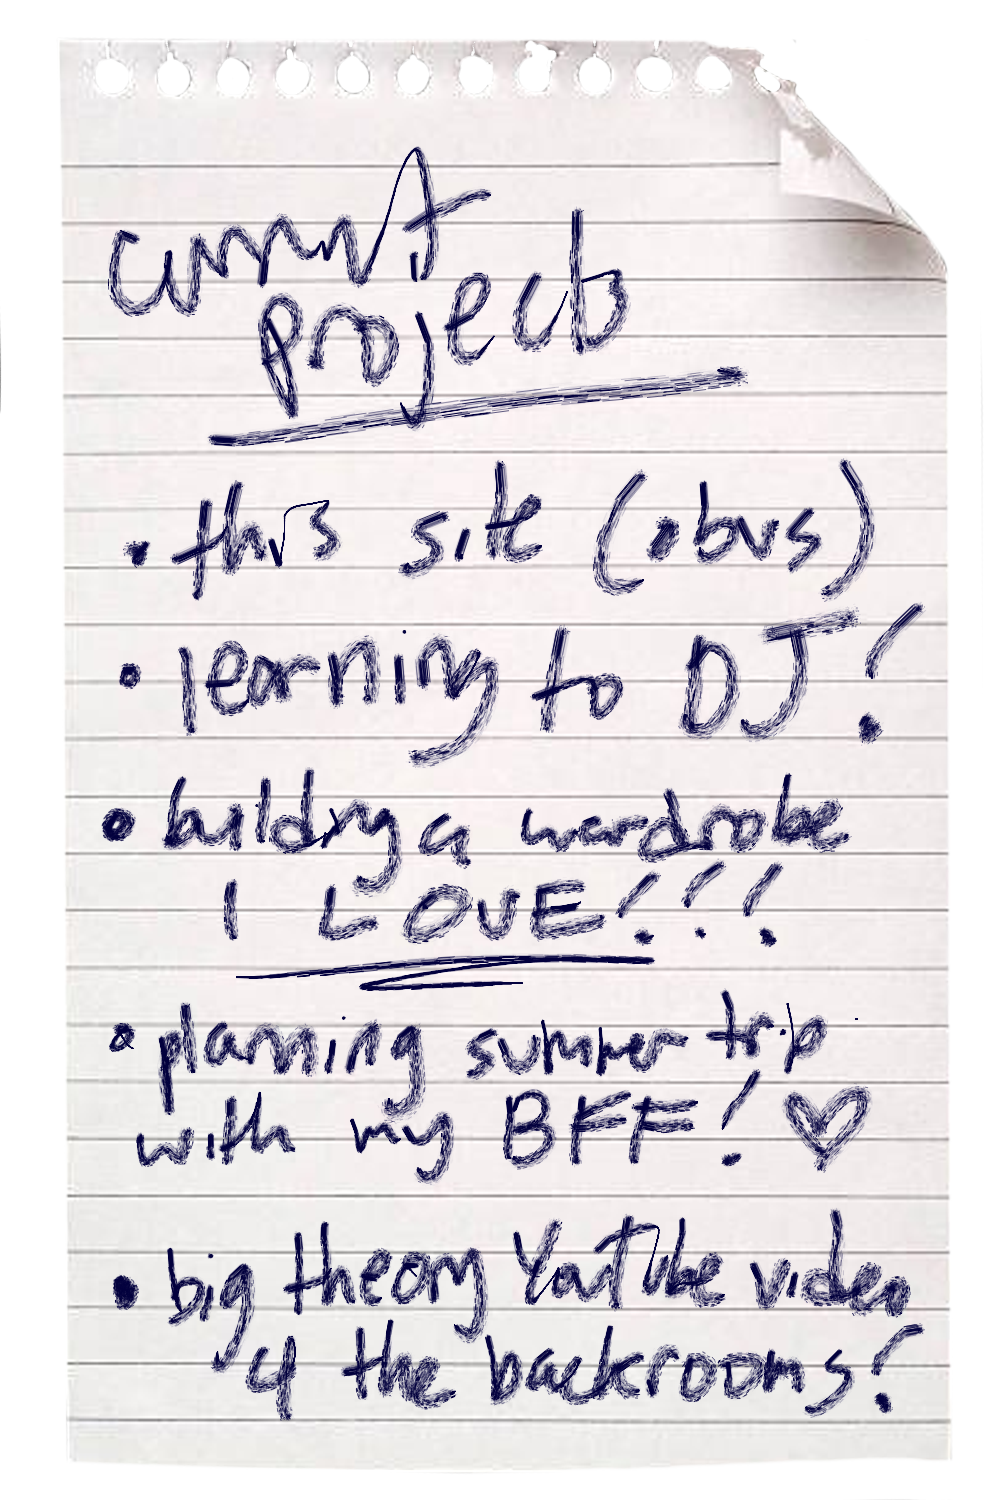 current
projects
• this site (obvs)
• learning to DJ!
• building a wardrobe
I LOVE!!!
• planning summer trip
with my BFF! ♡
• big theory YouTube video
4 the backrooms!